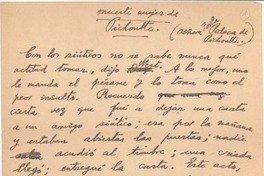 muerte mujer de
Pichoutte.
(señora Paloca de
Pichoutte.
Con los siúticos no se sabe nunca qué
actitud tomar, dijo West. A lo mejor, uno
le manda el pésame y lo toma como el
peor insulto. Recuerdo
cierta vez que fuí a dejar una carta
a un amigo siútico; era por la mañana
y estaban abiertas las puertas; nadie
acudió al timbre; una criada
llegó; entregué la carta. Este acto,